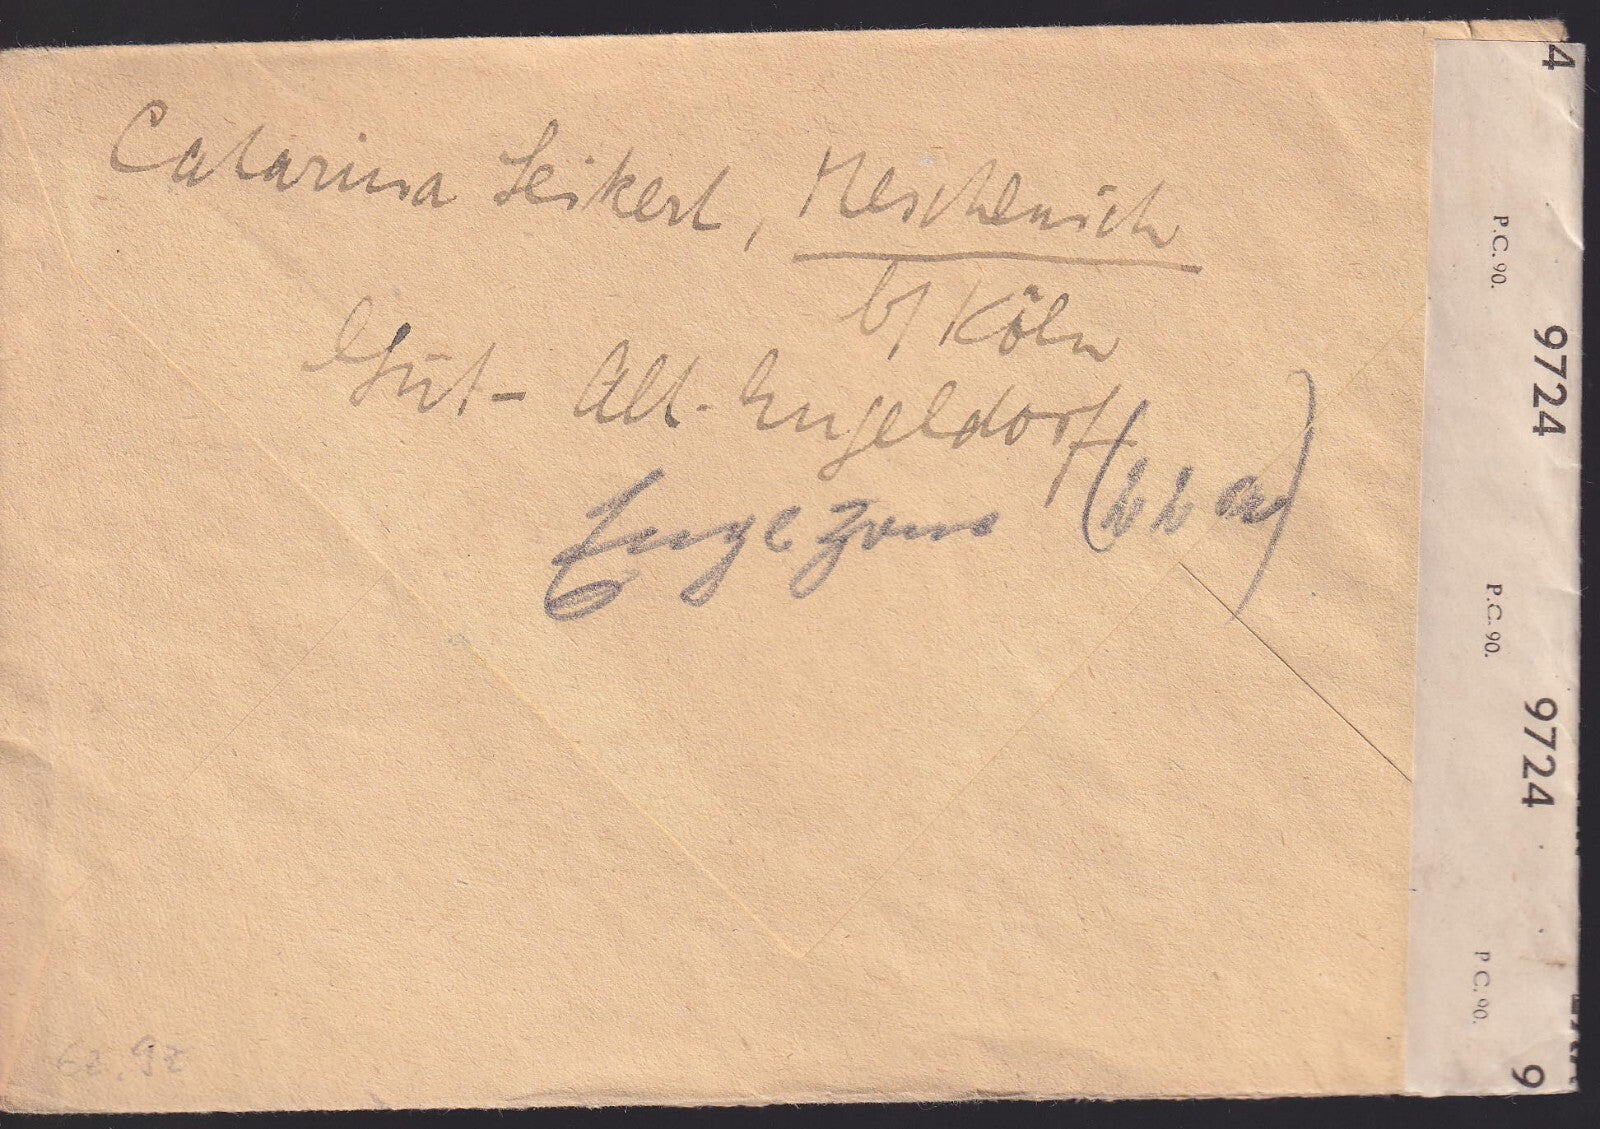 Catarina Seikert, Meschenich
b/ Köln
Gut - Alt-Engeldorf
Engl. Zone (22 a)
4
P.C. 90.
9724
P.C. 90.
9724
P.C. 90.
9